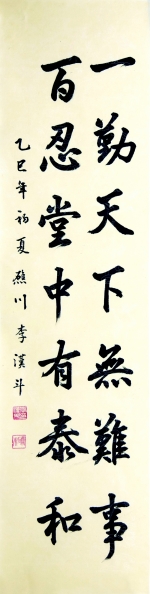 一勤天下無難事
百忍堂中有泰和
乙巳年初夏 懸川李漢斗